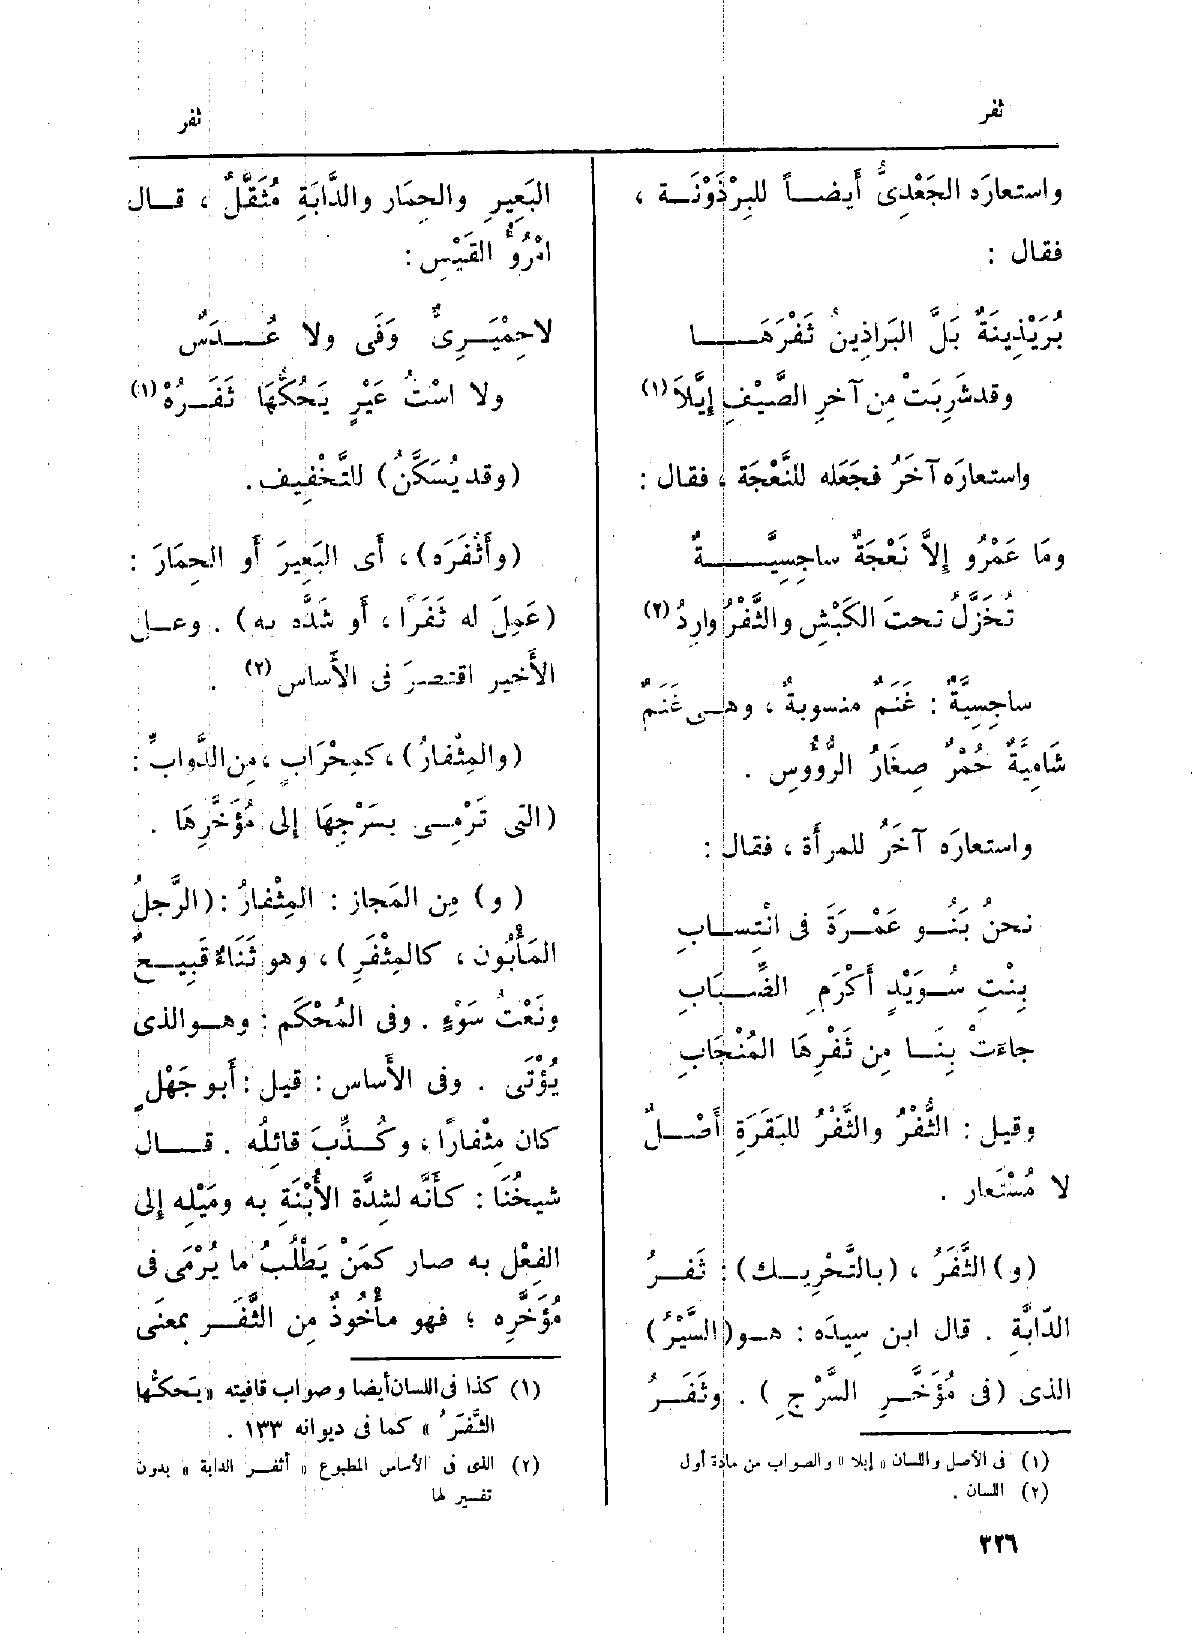 ثفر
ثفر
واستعارَه الجَعْدِىُّ أَيضــاً للبِرْذَوْنَــة ،
فقال :
بُرَيْذِينَةٌ بَلَّ البَرَاذِينُ ثَفْرَهَــــا
وقد شَرِبَتْ مِن آخرِ الصَّيْفِ إِيَّلاَ (١)
واستعارَه آخَرُ فجَعَله للنَّعْجَة ، فقال :
ومَا عَمْرُو إِلاَّ نَعْجَةٌ ساجِسِيَّــــةٌ
تُخَزَّلُ تحتَ الكَبْشِ والثَّفْرُ وارِدُ (٢)
ساجِسِيَّةٌ : غَنَمٌ منسوبةٌ ، وهــى غَنَمٌ
شَامِيَّةٌ حُمْرٌ صِغَارُ الرُّؤُوسِ .
واستعارَه آخَرُ للمرأَة ، فقال :
نحنُ بَنُــو عَمْــرَةَ فى انْتِســابِ
بِنْتِ سُــوَيْدٍ أَكْرَمِ الضِّــبَابِ
جاءَتْ بِنَــا مِن ثَفْرِهَا المُنْجَابِ
وقيل : الثُّفْرُ والثَّفْرُ للبَقَرَةِ أَصْــلٌ
لا مُسْتَعار .
(و) الثَّفَرُ ، (بالتَّحْرِيــك) : ثَفَــرُ
الدّابَّةِ . قال ابن سِيدَه : هــو (السَّيْرُ)
الذى (فى مُؤَخَّــرِ السَّرْجِ) . وثَفَــرُ
(١) فى الأصل واللسان « إبلا » والصواب من مادة أول
(٢) اللسان .
البَعِيرِ والحِمَار والدَّابَةِ مُثَقَّلٌ ، قــال
امْرُؤُ القَيْسِ :
لاحِمْيَــرِىٌّ وَفَى ولا عُــــدَسٌ
ولا اسْتُ عَيْرٍ يَحُكُّهَا ثَفَــرُهْ (١)
(وقد يُسَكَّنُ) للتَّخْفِيف .
(وأَثْفَرَه) ، أَى البَعِيرَ أَو الحِمَارَ :
(عَمِلَ له ثَفَرًا ، أَو شَدَّه به) . وعــلى
الأَخير اقتصرَ فى الأَساس (٢) .
(والمِثْفارُ) ، كمِحْرَابٍ ، مِن الدَّوابِّ :
(التى تَرْمِــى بسَرْجِهَا إِلى مُؤَخَّرِهَا .
(و) مِن المَجاز : المِثْفارُ : (الرَّجلُ
المَأْبُون ، كالمِثْفَرِ) ، وهو ثَنَاءٌ قَبِيــحٌ
ونَعْتُ سَوْءٍ . وفى المُحْكَم : وهــو الذى
يُؤْتَى . وفى الأَساس : قيل : أَبو جَهْلٍ
كان مِثْفارًا ، وكُــذِّبَ قائِلُه . قــال
شيخُنَا : كأَنَّه لشِدَّة الأُبْنَةِ به ومَيْلِه إِلى
الفِعْلِ به صار كمَنْ يَطْلُبُ ما يُرْمَى فى
مُؤَخَّرِه ؛ فهو مأْخُوذٌ مِن الثَّفَــرِ بمعنَى
(١) كذا فى اللسان أيضا وصواب قافيته « يَحكُّها
الثَّفَرُ » كما فى ديوانه ١٣٣ .
(٢) الذى فى الأساس المطبوع « أثفــر الدابة » بدون
تفسير لها
٣٢٦